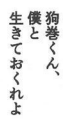 狗巻くん、
僕と
生きておくれよ